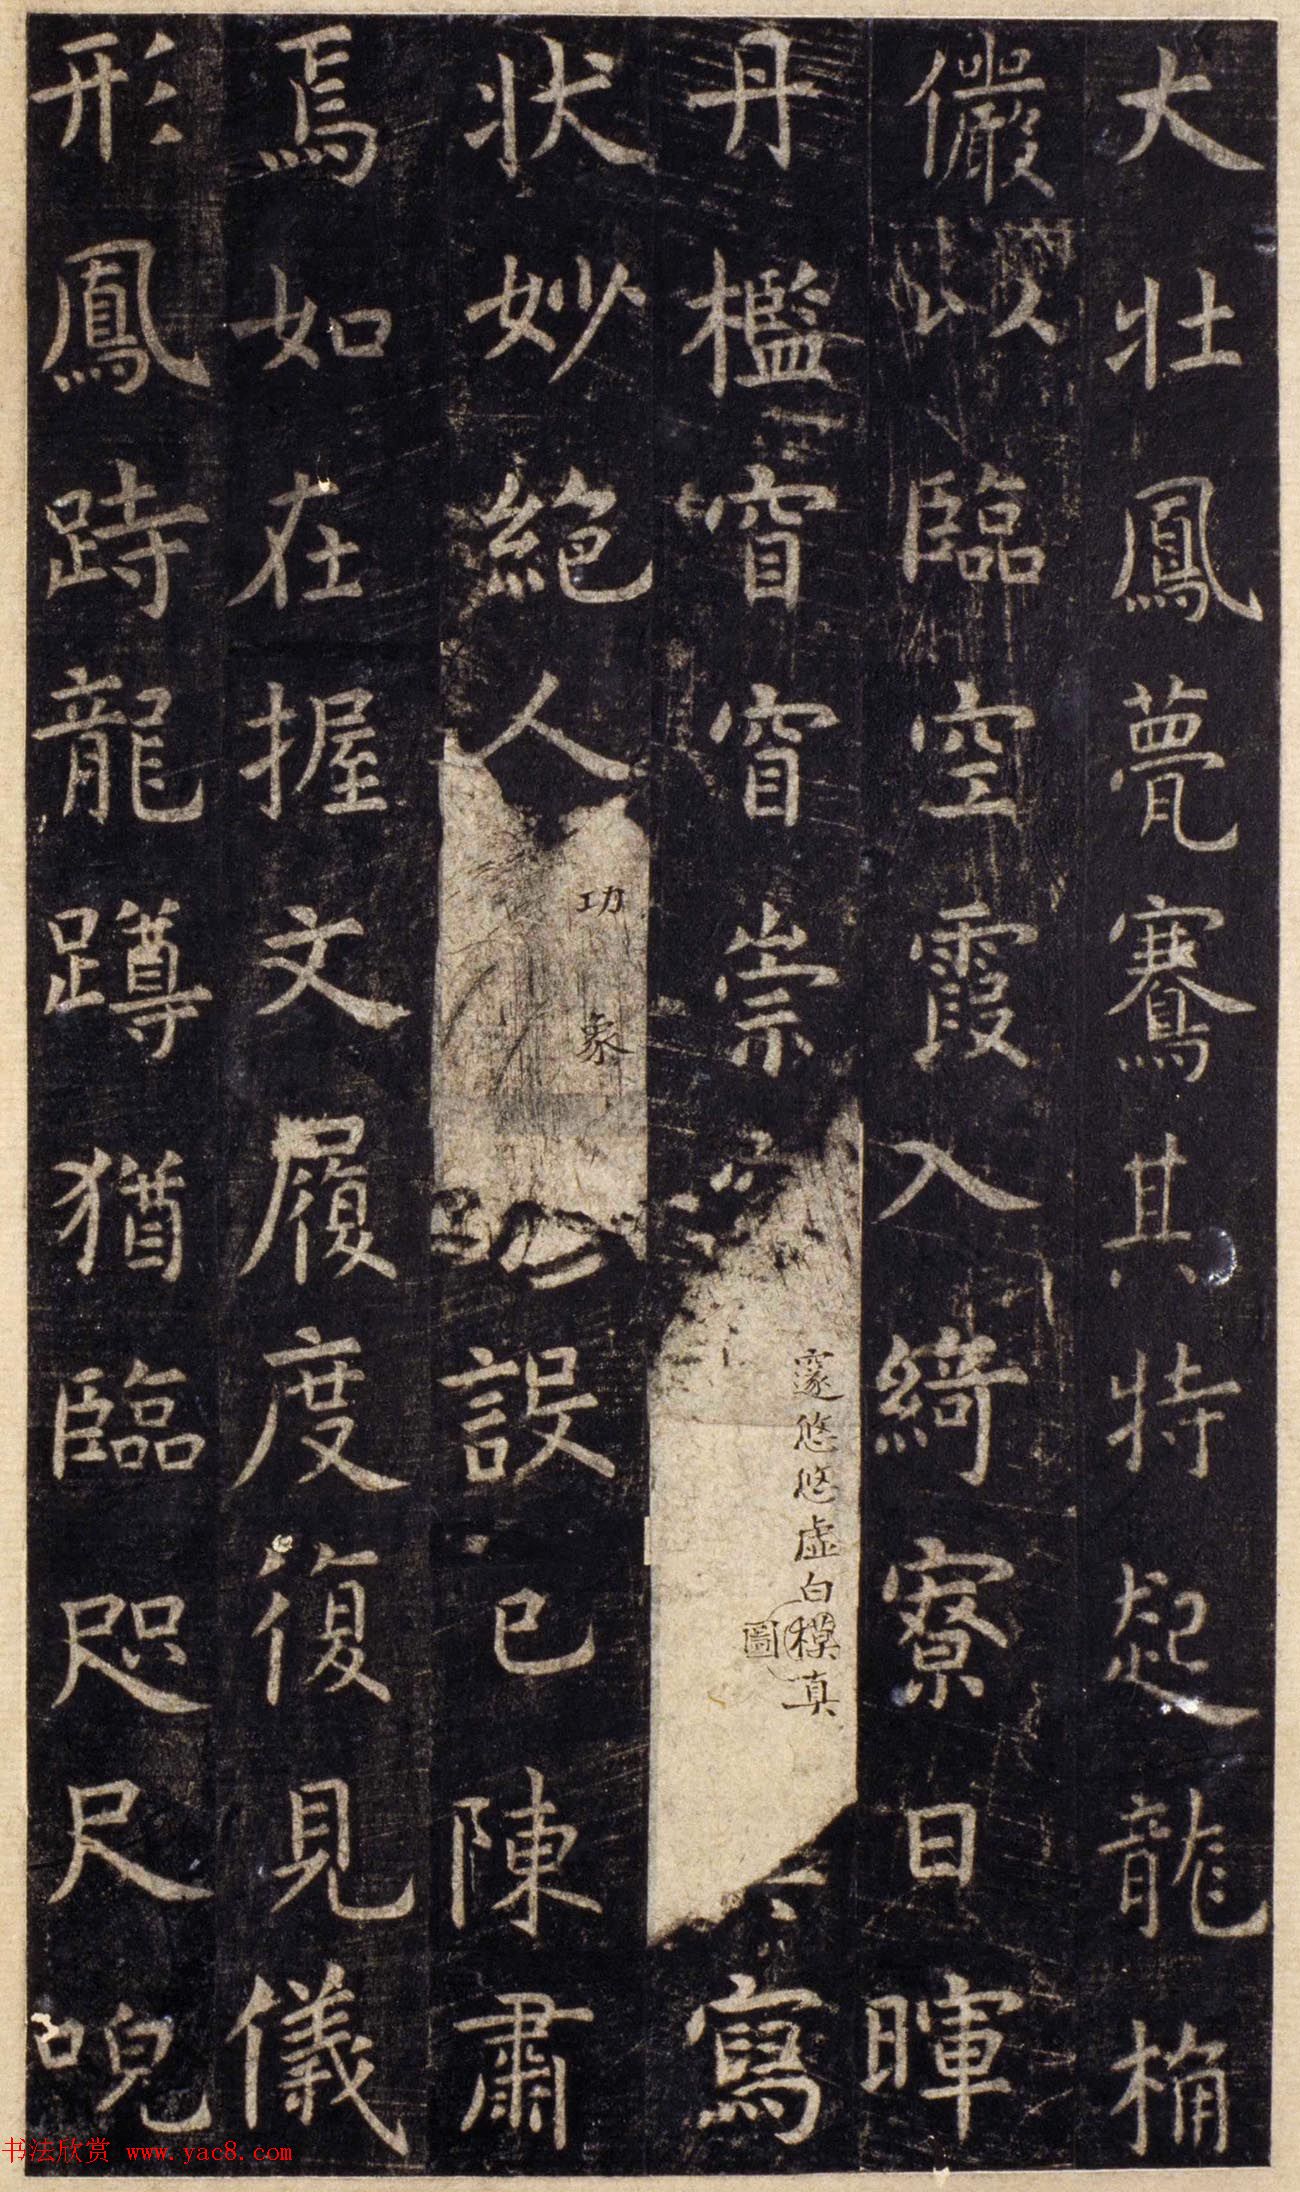 大壯鳳甍鶱其特起龍桷
儼以臨空霞入綺寮日暉
丹檻窅窅崇
邃悠悠虛白模真
圖
寫
狀妙絕人
功象
設已陳肅
焉如在握文履度復見儀
形鳳跱龍蹲猶臨咫尺唲
书法欣赏 www.yac8.com